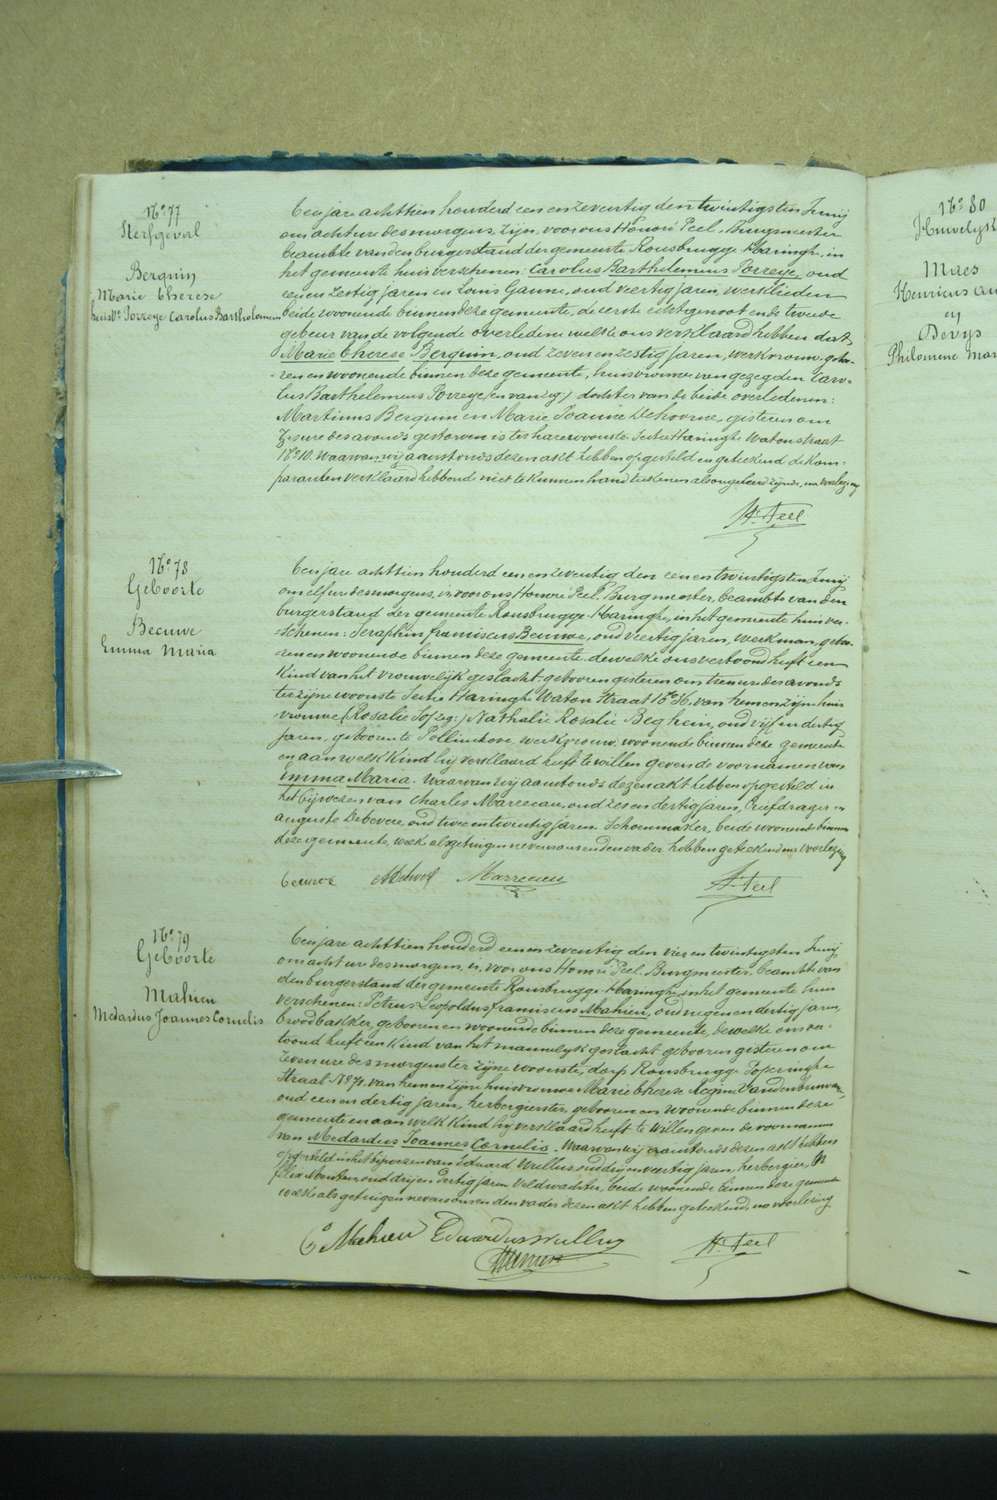 No. 77
Sterfgeval
Berquin
Marie Therese
huisve. Torreye Carolus Bartholomeus
Ten jare achttien honderd een en zeventig den twintigsten Junij
om acht ure des morgens, zijn, voor ons Honoré Peel, Burgmeester
beambte van den burgerstand der gemeente Rousbrugge-Haringhe, in
het gemeente huis verschenen: Carolus Barthelemeus Torreye, oud
een en zestig jaren en Louis Ganne, oud veertig jaren, werklieden
beide woonende binnen deze gemeente, de eerste echtgenoot en de tweede
gebuur van de volgende overledene welke ons verklaard hebben dat
Marie Therese Berquin, oud zeven en zestig jaren, werkvrouw, gebo-
ren en woonende binnen deze gemeente, huisvrouwe van gezegden Caro-
lus Barthelemeus Torreye (en van zeg.) dochter van de beide overledenen:
Martinus Berquin en Marie Joanne Dehoorne, gisteren om
ure des avonds gestorven is ter harer woonste Sectie Haringhe Watoustraat
No. 10. Waarvan wij aanstonds dezen akt hebben opgesteld en geteekend de Kom-
paranten verklaard hebbende niet te kunnen handteekenen als ongeleerd zijnde, na voorlezing
H. Peel
No. 78
Geboorte
Becuwe
Emma Maria
Ten jare achttien honderd een en zeventig den een en twintigsten Junij
om elf ure des morgens, is voor ons Honoré Peel, Burgmeester, beambte van den
burgerstand der gemeente Rousbrugge-Haringhe, in het gemeente huis ver-
schenen: Seraphin franciscus Becuwe, oud veertig jaren, werkman, gebo-
ren en woonende binnen deze gemeente, dewelke ons vertoond heeft een
Kind van het vrouwelijk geslacht, geboren gisteren om tien ure des avonds
te zijne woonste Sectie Haringhe Watou Straat No. 36, van hem en zijn huis
vrouwe (Rosalie Jos zeg:) Nathalie Rosalie Beghein, oud vijf en dertig
jaren, geboren te Pollinchove, werkvrouw, woonende binnen deze gemeente
en aan welk Kind hij verklaard heeft te willen geven de voornamen van
Emma Maria. Waarvan wij aanstonds dezen akt hebben opgesteld in
het bijwezen van Charles Marreeau, oud zes en dertig jaren, Briefdrager en
auguste Debevere, oud twee en twintig jaren, Schoenmaker, beide woonende binnen
deze gemeente, welk als getuigen nevens ons en den vader hebben geteekend na voorlezing
H. Peel
No. 79
Geboorte
Mahieu
Medardus Joannes Cornelis
Ten jare achttien honderd een en zeventig den vier en twintigsten Junij
om acht ure des morgens, is, voor ons Honoré Peel, Burgmeester, beambte van
den burgerstand der gemeente Rousbrugge-Haringhe, in het gemeente huis
verschenen: Petrus Leopoldus franciscus Mahieu, oud negen en dertig jaren,
broodbakker, geboren en woonende binnen deze gemeente, dewelke ons ver-
toond heeft een Kind van het mannelijk geslacht geboren gisteren om
zeven ure des morgens ter zijne woonste, dorp Rousbrugge Poperinghe
Straat No. 71, van hem en zijne huisvrouwe Marie Therese Regina Vandenbouwer,
oud een en dertig jaren, herbergierster, geboren en woonende binnen deze
gemeente en aan welk Kind hij verklaard heeft te willen geven de voornamen
van Medardus Joannes Cornelis. Waarvan wij aanstonds dezen akt hebben
opgesteld in het bijwezen van Eduard Wullus oud drij en veertig jaren, herbergier,
oud drij en dertig jaren, Veldwachter, beide woonende binnen deze gemeente
welk als getuigen nevens ons en den vader dezen akt hebben geteekend, na voorlezing
Mahieu Eduardus Wullus
H. Peel
No. 80
Huwelijk
Maes
Henricus
en
Devys
Philomene